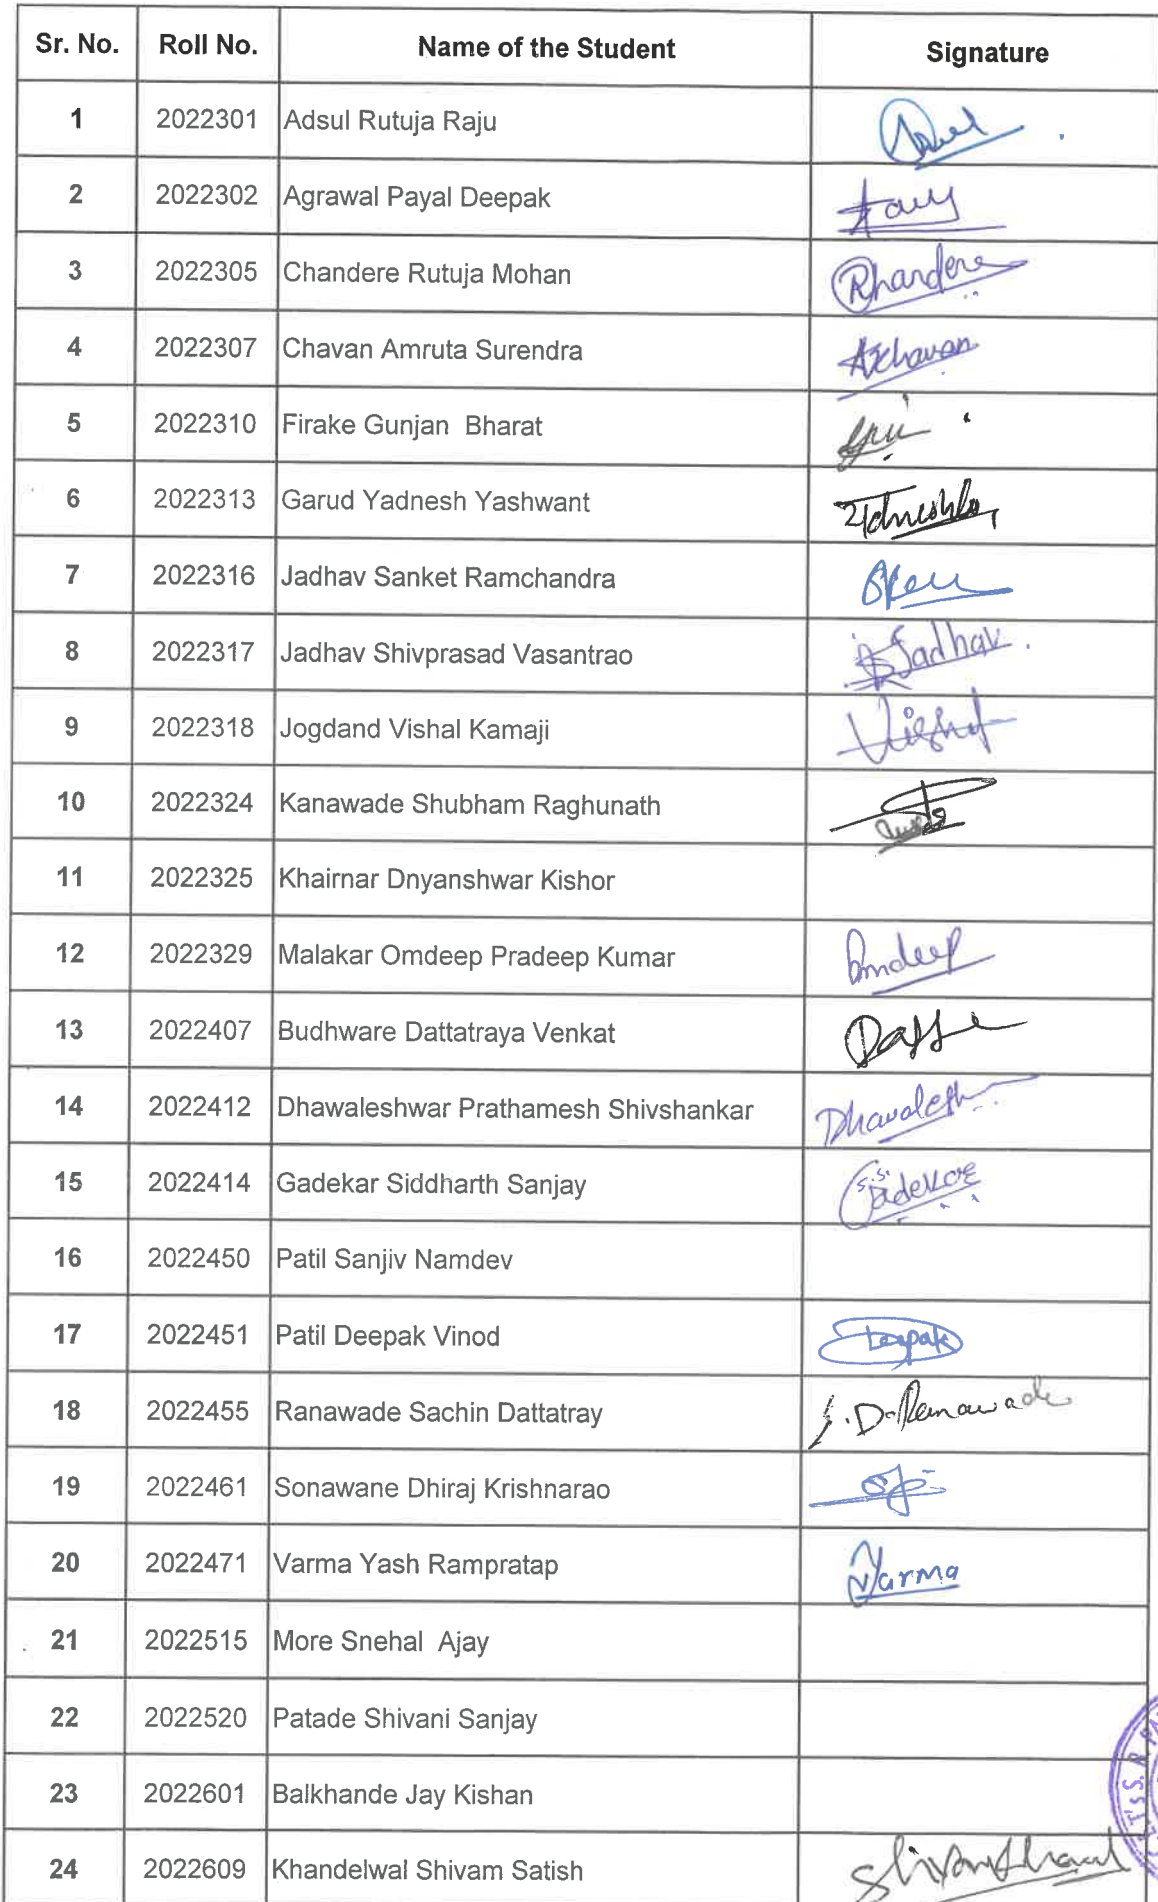 Sr. No. Roll No. Name of the Student Signature
1 2022301 Adsul Rutuja Raju
2 2022302 Agrawal Payal Deepak
3 2022305 Chandere Rutuja Mohan Rhandere
4 2022307 Chavan Amruta Surendra AChavan
5 2022310 Firake Gunjan Bharat
6 2022313 Garud Yadnesh Yashwant
7 2022316 Jadhav Sanket Ramchandra
8 2022317 Jadhav Shivprasad Vasantrao Jadhav
9 2022318 Jogdand Vishal Kamaji
10 2022324 Kanawade Shubham Raghunath
11 2022325 Khairnar Dnyanshwar Kishor
12 2022329 Malakar Omdeep Pradeep Kumar Omdeep
13 2022407 Budhware Dattatraya Venkat
14 2022412 Dhawaleshwar Prathamesh Shivshankar
15 2022414 Gadekar Siddharth Sanjay
16 2022450 Patil Sanjiv Namdev
17 2022451 Patil Deepak Vinod Deepak
18 2022455 Ranawade Sachin Dattatray S.D.Ranawade
19 2022461 Sonawane Dhiraj Krishnarao
20 2022471 Varma Yash Rampratap Varma
21 2022515 More Snehal Ajay
22 2022520 Patade Shivani Sanjay
23 2022601 Balkhande Jay Kishan
24 2022609 Khandelwal Shivam Satish